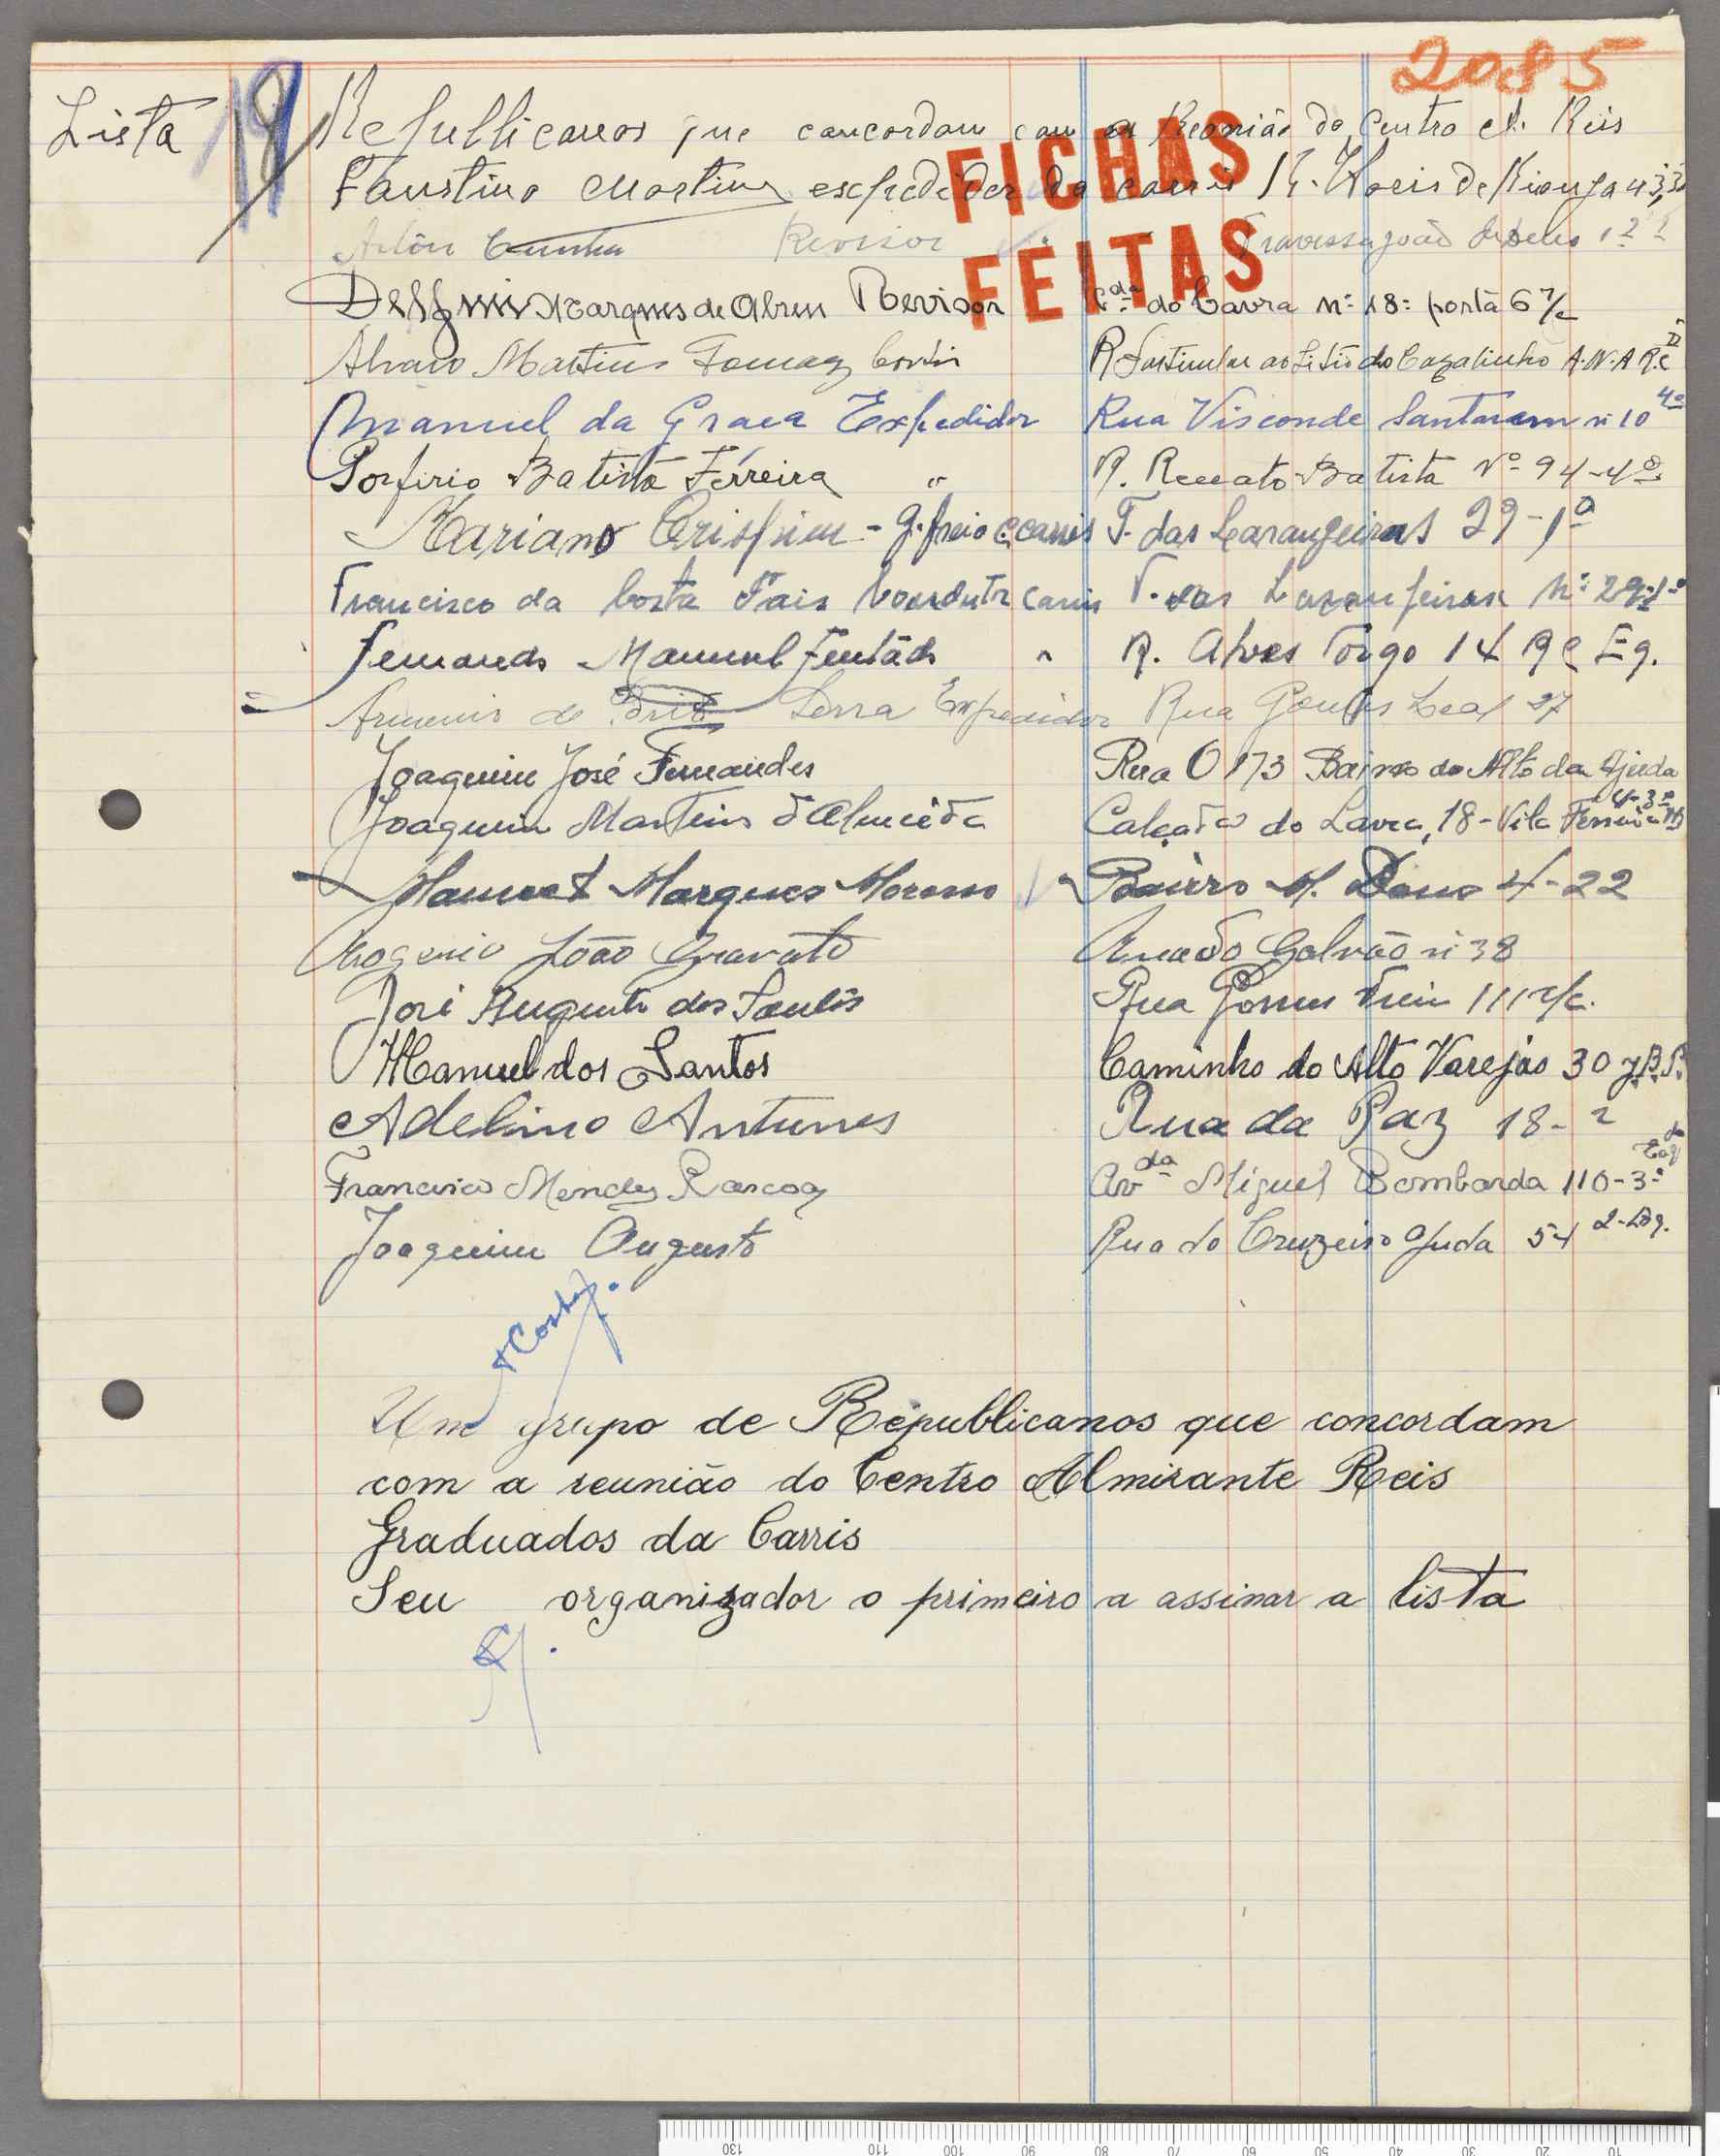 2085
Lista 19 Republicanos que concordam com a Reonião do Centro A. Reis
FICHAS
Faustino Martins expedidor da carris R. de Kionga 33
Cunha Revisor Travessa João de Deus 12
FEITAS
Delfim Marques de Abreu Revisor Cda do Lavra nº 18: porta 6 r/c
Alvaro Martins Tomaz R Particular ao Sitio do Cazalinho A.N.A R.C D
Manuel da Graca Expedidor Rua Visconde Santarem nº 10 4º
Porfirio Batista Ferreira " R. Reccato Batista Nº 94-4º
Mariano Crispim - g. freio c. carris T. das Larangeiras 29-1º
Francisco da Costa Pais Condutr carris T. das Laranjeiras Nº 29-1º
Fernando Manuel " R. Alves Torgo 14 R C Eq.
Armenio de Brito Serra Expedidor Rua Gomes Leal 27
Joaquim José Fernandes Rua O 173 Bairro do Alto da Ajuda
Joaquim Martins d'Almeida Calçada do Lavra, 18-Vila Ferreira
Manuel Marques Bairro M. Deus 4-22
Rogerio João Gravato Rua do Galvão nº 38
José Augusto dos Santos Rua Gomes Freire 111 r/c.
Manuel dos Santos Caminho do Alto Varejão 30
Adelino Antunes Rua da Paz 18-2
Francisco Mendes Rascoa Avda Miguel Bombarda 110-3º
Joaquim Augusto Rua do Cruzeiro Ajuda 54 2-Esq.
Um grupo de Républicanos que concordam
com a reunião do Centro Almirante Reis
Graduados da Carris
Seu organizador o primeiro a assinar a lista